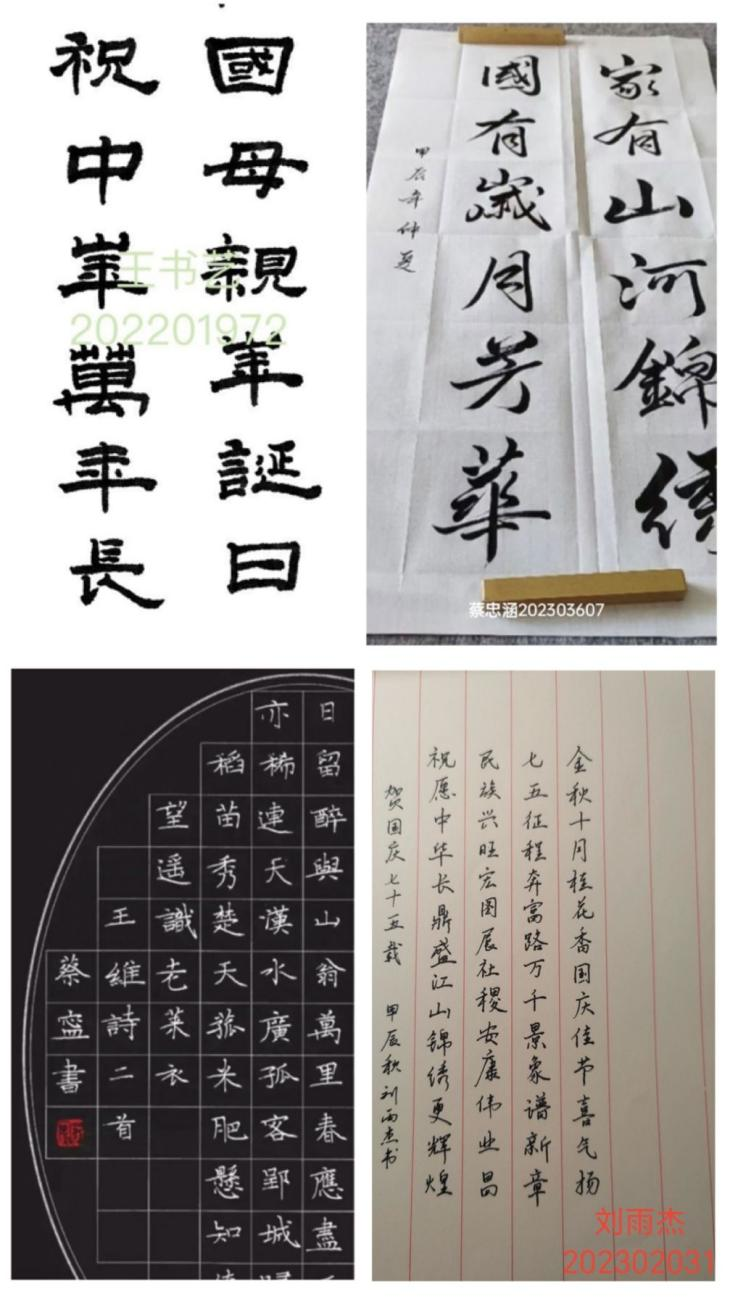 國母親華誕日
祝中華萬年長
王书艺
202201972
家有山河錦绣
國有歲月芳華
甲辰年仲夏
蔡忠涵202303607
日留醉與山翁萬里春應盡
亦稀連天漢水廣孤客郢城歸
稻苗秀楚天菰米肥懸知倚
望遥識老莱衣
王維詩二首
蔡寍書
金秋十月桂花香国庆佳节喜气扬
七五征程奔富路万千景象谱新章
民族兴旺宏图展社稷安康伟业昌
祝愿中华长鼎盛江山錦绣更辉煌
贺国庆七十五载 甲辰秋刘雨杰书
刘雨杰
202302031